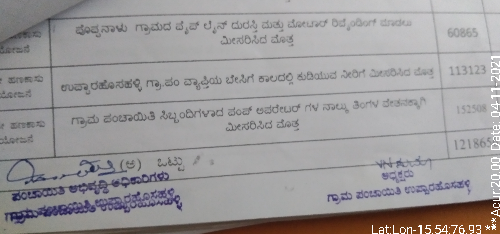 ಪೊಪ್ಪನಾಳು ಗ್ರಾಮದ ಪೈಪ್ ಲೈನ್ ದುರಸ್ತಿ ಮತ್ತು ಮೋಟಾರ್ ರಿವೈಂಡಿಂಗ್ ಮಾಡಲು
ಮೀಸರಿಸಿದ ಮೊತ್ತ
60865
ಹಣಕಾಸು
ಯೋಜನೆ
ಉಪ್ಪಾರಹೊಸಹಳ್ಳಿ ಗ್ರಾ.ಪಂ ವ್ಯಾಪ್ತಿಯ ಬೇಸಿಗೆ ಕಾಲದಲ್ಲಿ ಕುಡಿಯುವ ನೀರಿಗೆ ಮೀಸರಿಸಿದ ಮೊತ್ತ
113123
ಹಣಕಾಸು
ಯೋಜನೆ
ಗ್ರಾಮ ಪಂಚಾಯಿತಿ ಸಿಬ್ಬಂದಿಗಳಾದ ಪಂಪ್ ಆಪರೇಟರ್ ಗಳ ನಾಲ್ಕು ತಿಂಗಳ ವೇತನಕ್ಕಾಗಿ
ಮೀಸರಿಸಿದ ಮೊತ್ತ
152508
(ಅ) ಒಟ್ಟು
121865
ಪಂಚಾಯಿತಿ ಅಭಿವೃದ್ಧಿ ಅಧಿಕಾರಿಗಳು
ಗ್ರಾಮ ಪಂಚಾಯಿತಿ ಉಪ್ಪಾರಹೊಸಹಳ್ಳಿ
ಅಧ್ಯಕ್ಷರು
ಗ್ರಾಮ ಪಂಚಾಯಿತಿ ಉಪ್ಪಾರಹೊಸಹಳ್ಳಿ
LatLon-15.54:76.93 *** Acur:20.00 Date: 04-11-2021